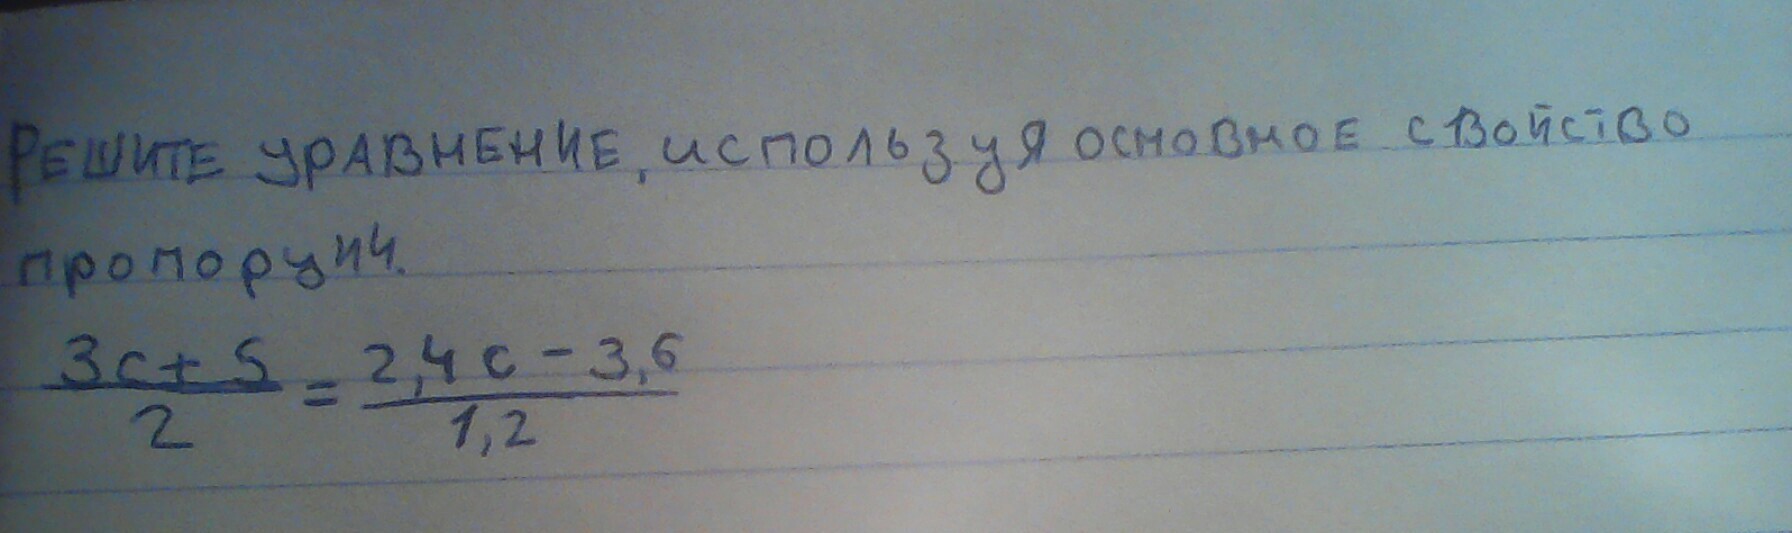 РЕШИТЕ УРАВНЕНИЕ, используя основное свойство
пропорции.
3c+5/2 = 2,4c-3,6/1,2